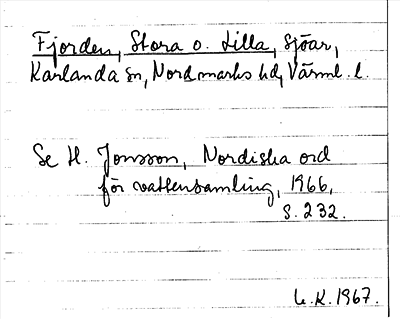 Fjorden, Stora o. Lilla, sjöar,
Karlanda sn, Nordmarks hd, Värml. l.
Se H. Jonsson, Nordiska ord
för vattensamling, 1966,
S. 232.
L.K. 1967.